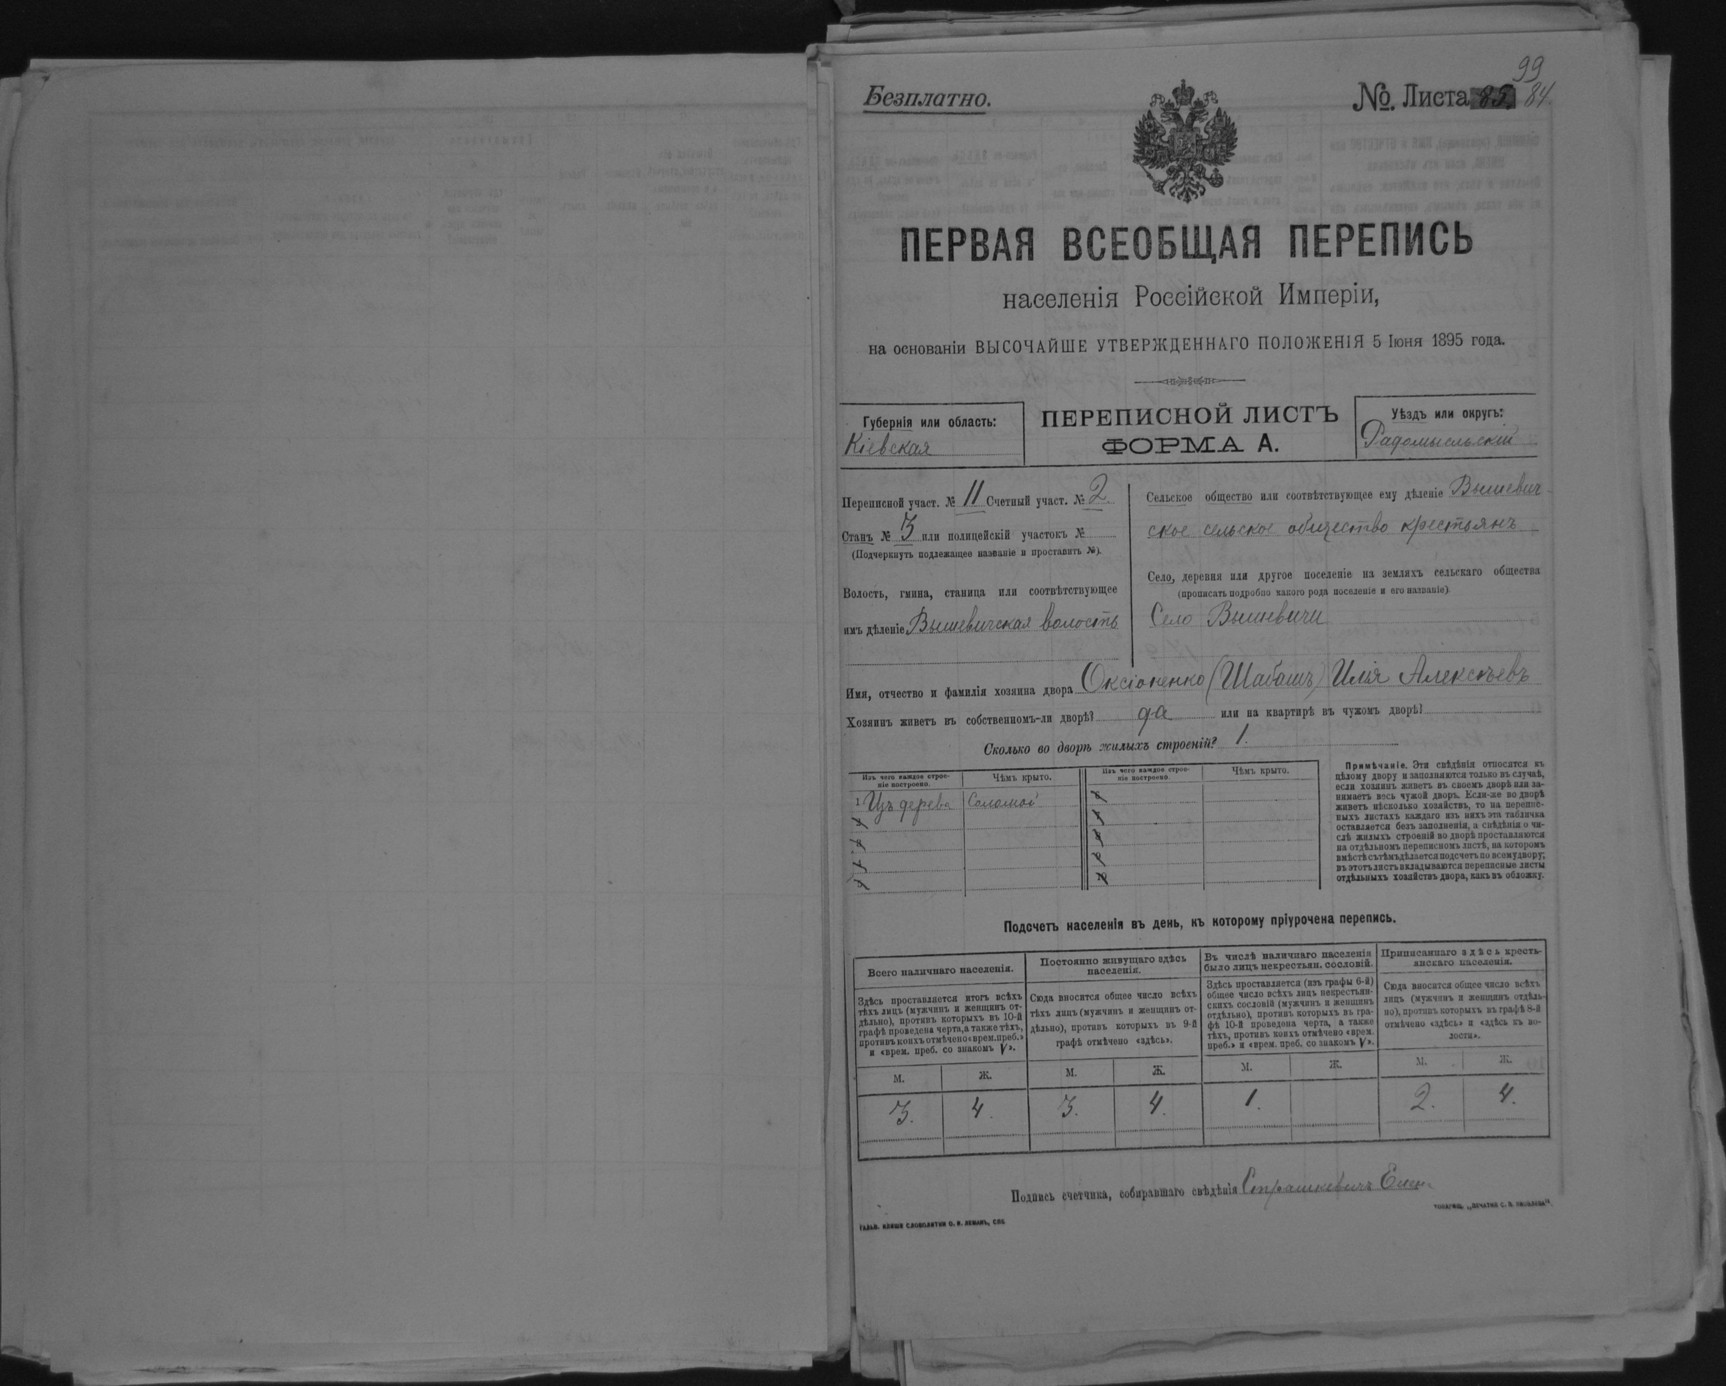 99
Безплатно.
№. Листа 85. 84.
ПЕРВАЯ ВСЕОБЩАЯ ПЕРЕПИСЬ
населенія Россійской Имперіи,
на основаніи ВЫСОЧАЙШЕ УТВЕРЖДЕННАГО ПОЛОЖЕНІЯ 5 Іюня 1895 года.
Губернія или область:
Кіевская
ПЕРЕПИСНОЙ ЛИСТЪ
ФОРМА А.
Уѣздъ или округъ:
Радомысльскій
Переписной участ. № 11 Счетный участ. № 2
Станъ № 3 или полицейскій участокъ №
(Подчеркнуть подлежащее названіе и проставить №).
Волость, гмина, станица или соотвѣтствующее
имъ дѣленіе Вышевичская волость
Сельское общество или соотвѣтствующее ему дѣленіе Вышевич-
ское сельское общество крестьянъ
Село, деревня или другое поселеніе на земляхъ сельскаго общества
(прописать подробно какого рода поселеніе и его названіе)
Село Вышевичи
Имя, отчество и фамилія хозяина двора Оксіоненко (Шабашъ) Илія Алексѣевъ
Хозяинъ живетъ въ собственномъ-ли дворѣ? да или на квартирѣ въ чужомъ дворѣ?
Сколько во дворѣ жилыхъ строеній? 1.
Изъ чего каждое строе-
ніе построено.
Чѣмъ крыто.
Изъ чего каждое строе-
ніе построено.
Чѣмъ крыто.
1 Изъ дерева Соломой
Примѣчаніе. Эти свѣдѣнія относятся къ
цѣлому двору и заполняются только въ случаѣ,
если хозяинъ живетъ въ своемъ дворѣ или за-
нимаетъ весь чужой дворъ. Если-же во дворѣ
живетъ нѣсколько хозяйствъ, то на перепис-
ныхъ листахъ каждаго изъ нихъ эта табличка
оставляется безъ заполненія, а свѣдѣнія о чи-
слѣ жилыхъ строеній во дворѣ проставляются
на отдѣльномъ переписномъ листѣ, на которомъ
вмѣстѣ съ тѣмъ дѣлается подсчетъ по всему двору;
въ этотъ листъ вкладываются переписные листы
отдѣльныхъ хозяйствъ двора, какъ въ обложку.
Подсчетъ населенія въ день, къ которому пріурочена перепись.
Всего наличнаго населенія.
Постоянно живущаго здѣсь
населенія.
Въ числѣ наличнаго населенія
было лицъ некрестьян. сословій.
Приписаннаго здѣсь кресть-
янскаго населенія.
Здѣсь проставляется итогъ всѣхъ
тѣхъ лицъ (мужчинъ и женщинъ от-
дѣльно), противъ которыхъ въ 10-й
графѣ проведена черта, а также тѣхъ,
противъ коихъ отмѣчено «врем. преб.»
и «врем. преб. со знакомъ V».
Сюда вносится общее число всѣхъ
тѣхъ лицъ (мужчинъ и женщинъ от-
дѣльно), противъ которыхъ въ 9-й
графѣ отмѣчено «здѣсь».
Здѣсь проставляется (изъ графы 6-й)
общее число всѣхъ лицъ некрестьян-
скихъ сословій (мужчинъ и женщинъ
отдѣльно), противъ которыхъ въ гра-
фѣ 10-й проведена черта, а также
тѣхъ, противъ коихъ отмѣчено «врем.
преб.» и «врем. преб. со знакомъ V».
Сюда вносится общее число всѣхъ
лицъ (мужчинъ и женщинъ отдѣль-
но), противъ которыхъ въ графѣ 8-й
отмѣчено «здѣсь» и «здѣсь къ во-
лости».
М. Ж. М. Ж. М. Ж. М. Ж.
3. 4. 3. 4. 1. 2. 4.
Подпись счетчика, собиравшаго свѣдѣнія Страшкевичъ
ГАЛЬВ. КЛИШЕ СЛОВОЛИТНИ О. И. ЛЕМАНЪ, СПБ.
ТОВАРИЩ. „ПЕЧАТНЯ С. П. ЯКОВЛЕВА“.